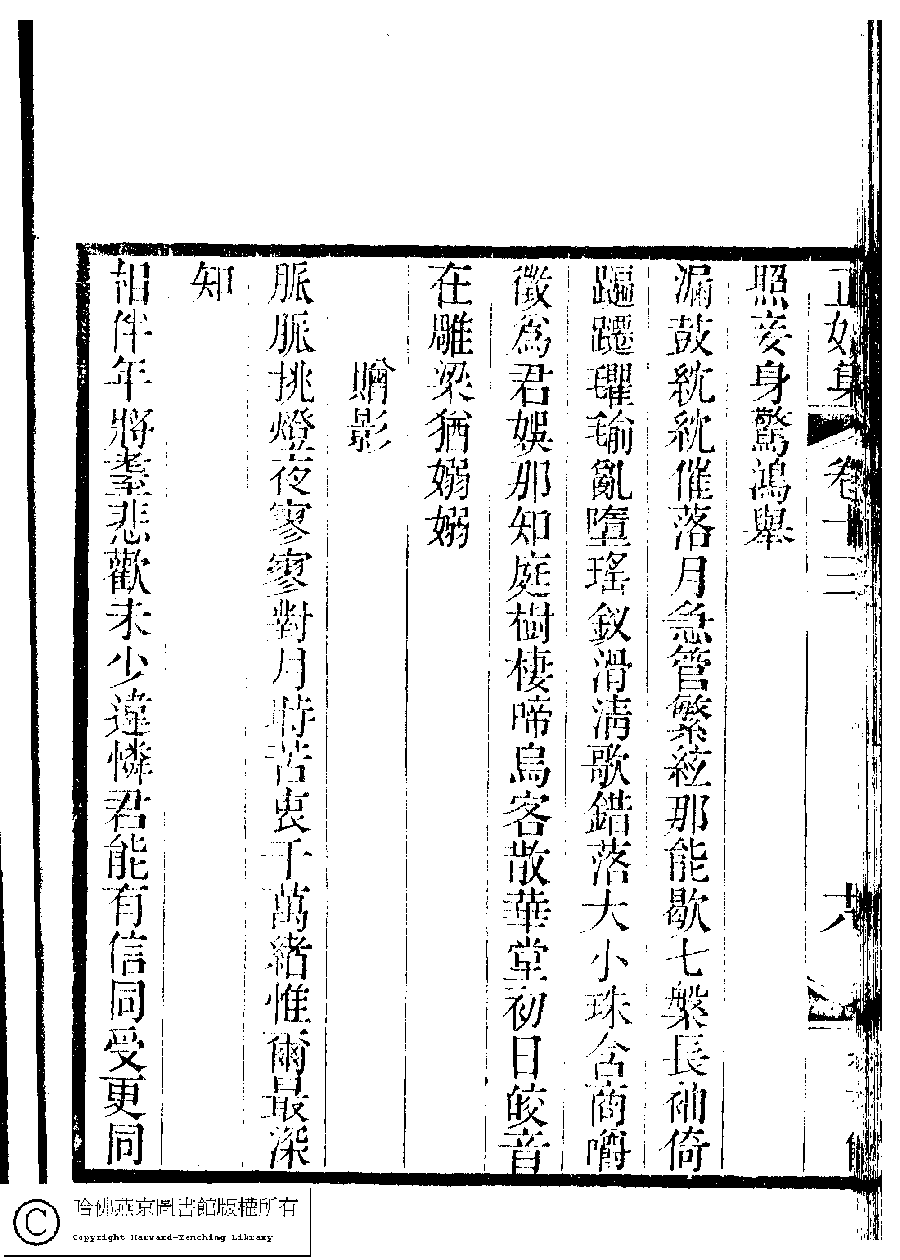 正始集 卷十三 六
照妾身驚鴻舉
漏鼓紞紞催落月急管繁絃那能歇七槃長袖倚
躧𣰽𣯜亂墮瑤釵滑淸歌錯落大小珠含商嚼
徵為君娛那知庭樹棲啼烏客散華堂初日皎音
在雕梁猶嫋嫋
贈影
脈脈挑燈夜寥寥對月時苦衷千萬緒惟爾最深
知
相伴年將耋悲歡未少違憐君能有信同受更同
哈佛燕京圖書館版權所有
Copyright Harvard-Yenching Library